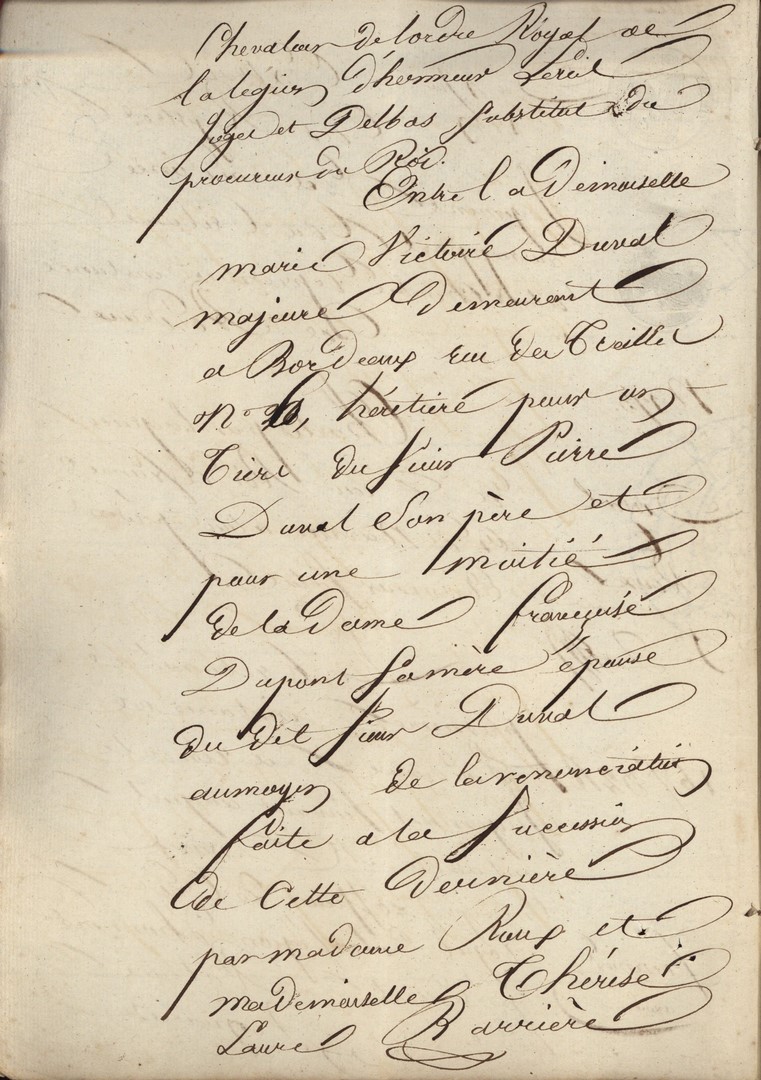 Chevalier de lordre Royal de
la legion d'honneur Leroi
Juges et Delbos substitut du
procureur du Roi.
Entre la Demoiselle
marie Victoire Duval
majeure Demeurant
a Bordeaux rue des Treilles
N° héritière pour un
Tiers du sieur Pierre
Duval Son père et
pour une moitié
de la Dame françoise
Dupont Samère épouse
du dit sieur Duval
aumoyen de larenonciation
faite a la Succession
de Cette Dernière
par madame Roux et
mademoiselle Thérèse
Laure Barrière